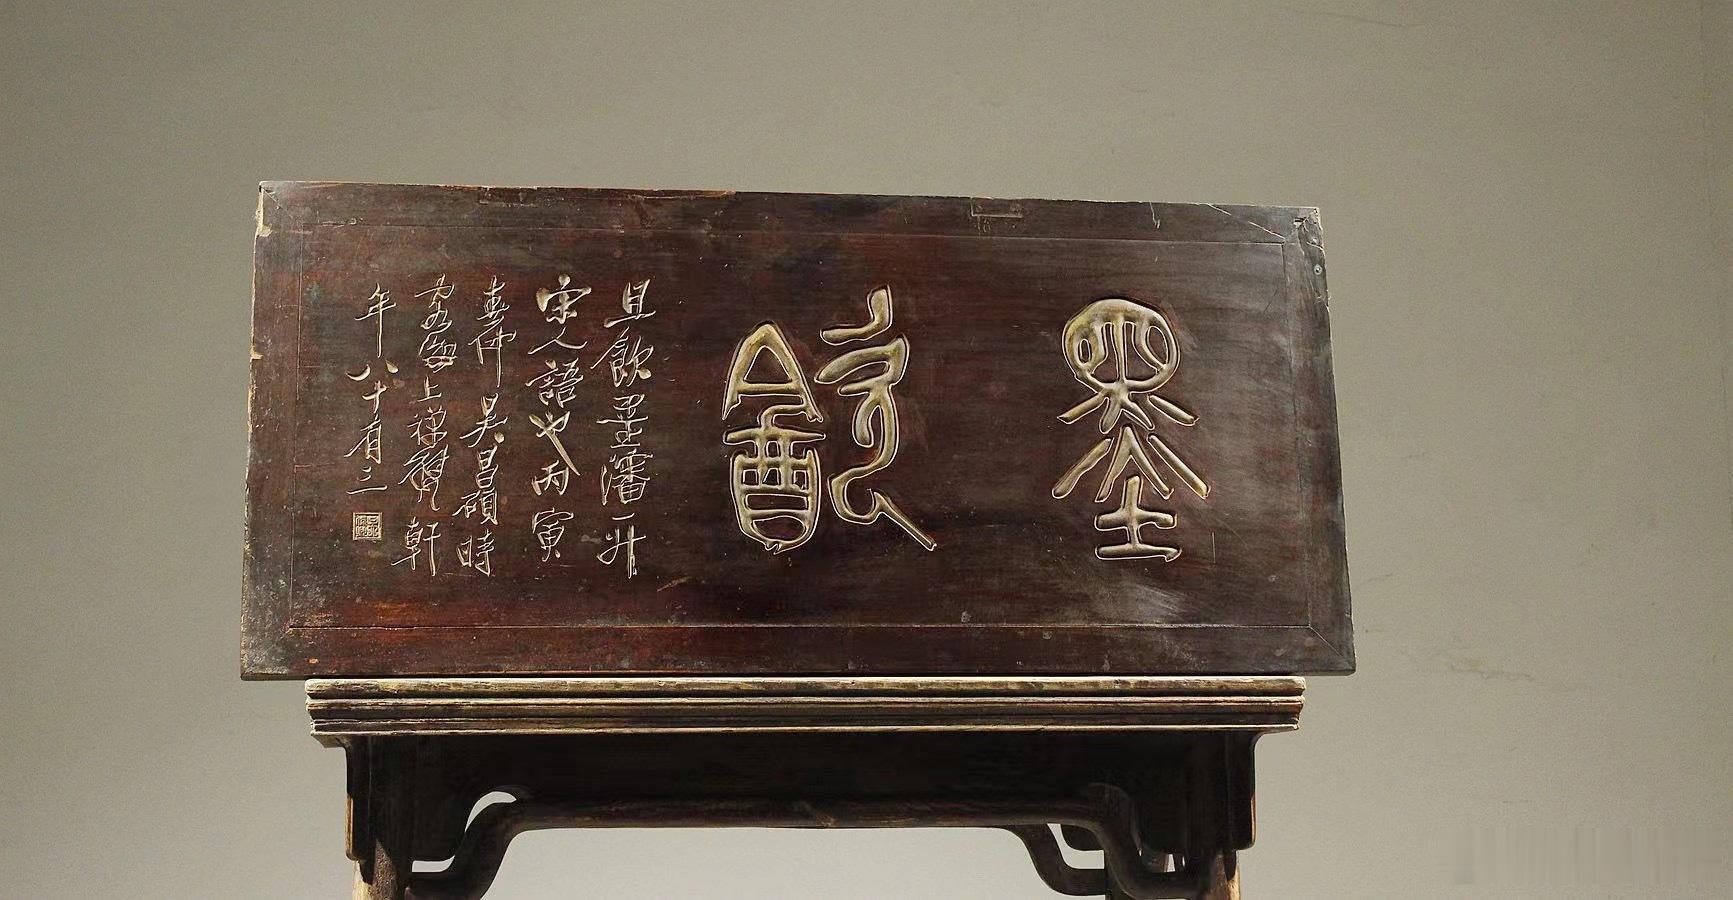 墨㱃
且飲墨瀋一升
宋人語也丙寅
春仲吳昌碩時
海上禪甓軒
年八十有三